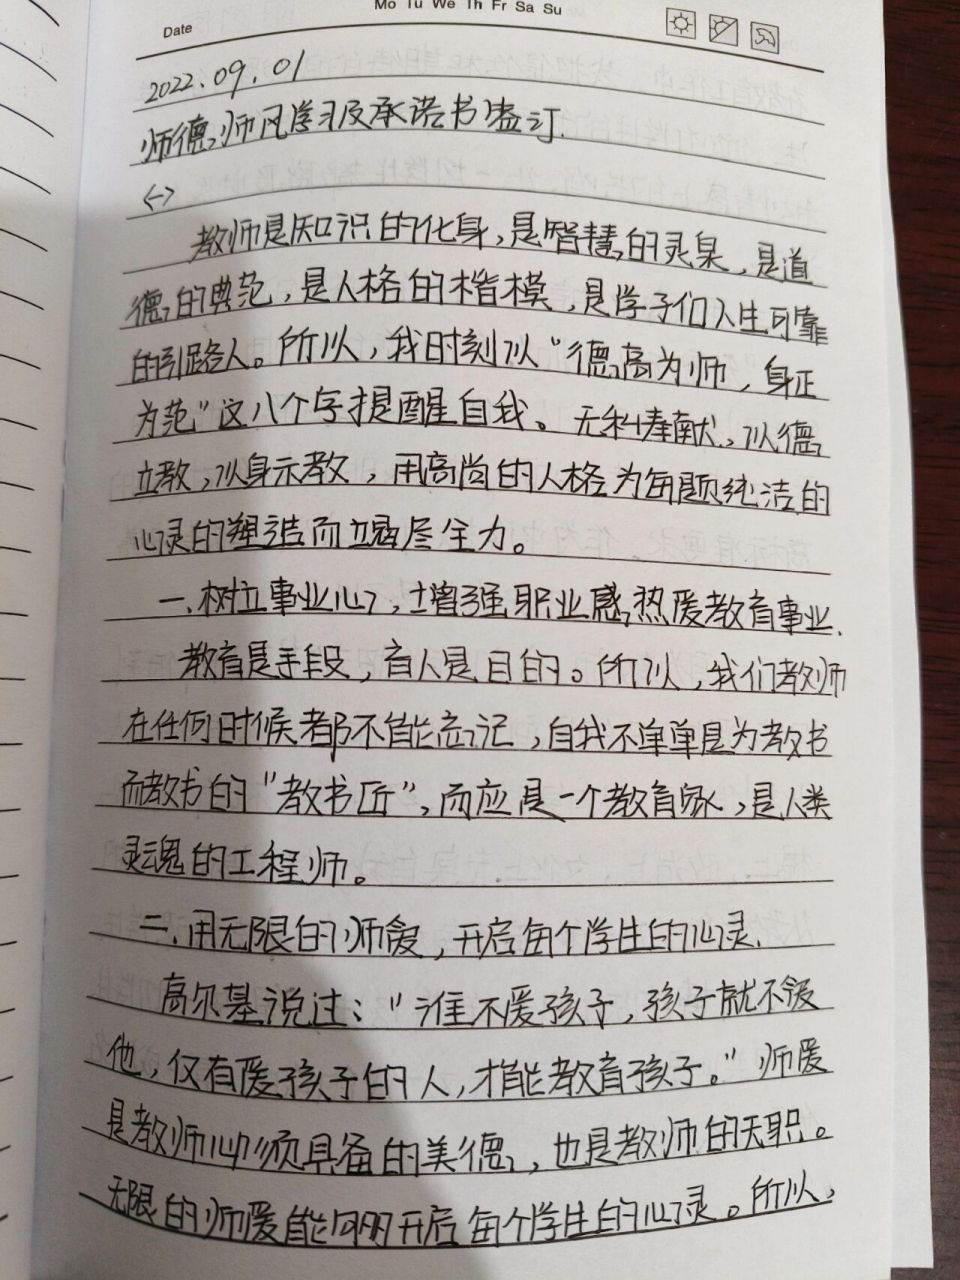 Mo Tu We Th Fr Sa Su
Date
2022.09.01
师德师风学习及承诺书签订.
<一>
教师是知识的化身,是智慧的灵泉,是道
德的典范,是人格的楷模,是学子们人生可靠
的引路人。所以,我时刻以“德高为师,身正
为范”这八个字提醒自我。无私奉献,以德
立教,以身示教,用高尚的人格为每题纯洁的
心灵的塑造而竭尽全力。
一.树立事业心,增强职业感,热爱教育事业.
教育是手段,育人是目的。所以,我们教师
在任何时候都不能忘记,自我不单单是为教书
而教书的“教书匠”,而应是一个教育家,是人类
灵魂的工程师。
二.用无限的师爱,开启每个学生的心灵.
高尔基说过:“谁不爱孩子,孩子就不爱
他,仅有爱孩子的人,才能教育孩子。”师爱
是教师必须具备的美德,也是教师的天职。
无限的师爱能够开启每个学生的心灵。所以,